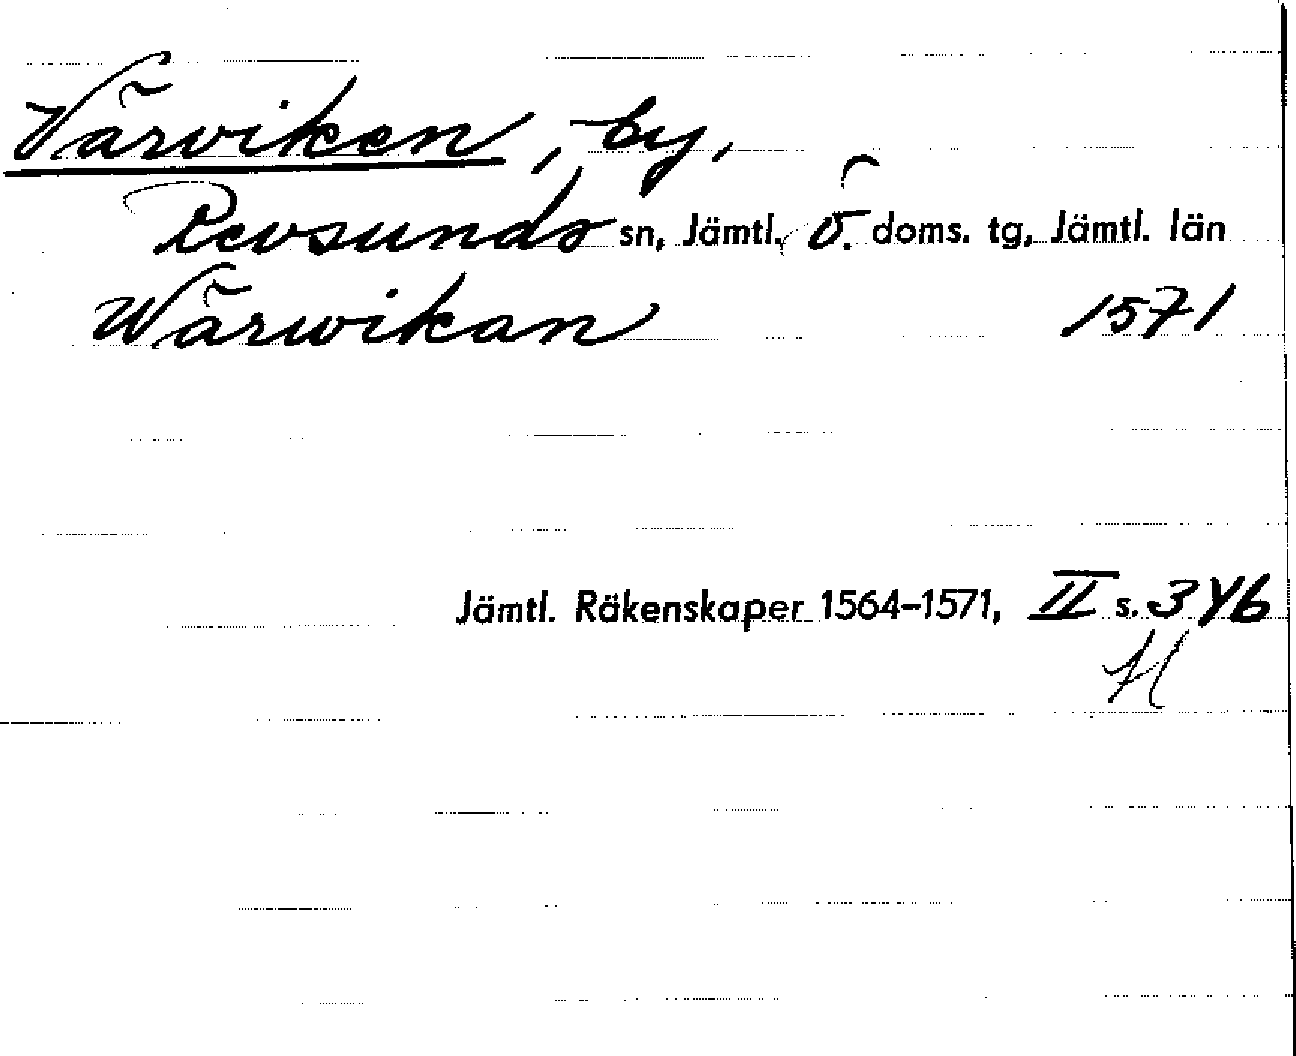 Värviken, by,
Revsunds sn, Jämtl., Ö. doms. tg, Jämtl. län
Wärwikan 1571
Jämtl. Räkenskaper 1564–1571, II s. 346
H